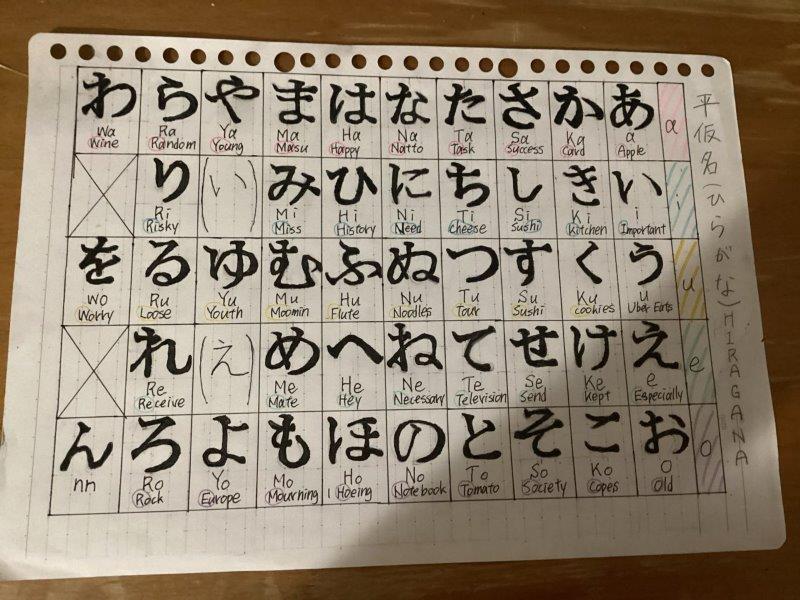 平仮名(ひらがな)HIRAGANA
わ ら や ま は な た さ か あ a
Wa Ra Ya Ma Ha Na Ta Sa Ka a
Wine Random Young Masu Happy Natto Task Success Card Apple
り (い) み ひ に ち し き い i
Ri Mi Hi Ni Ti Si Ki i
Risky Miss History Need Cheese Sushi Kitchen Important
を る ゆ む ふ ぬ つ す く う u
Wo Ru Yu Mu Hu Nu Tu Su Ku u
Worry Loose Youth Moomin Flute Noodles Tour Sushi Cookies Uber Eats
れ (え) め へ ね て せ け え e
Re Me He Ne Te Se Ke e
Receive Mate Hey Necessary Television Send Kept Especially
ん ろ よ も ほ の と そ こ お o
nn Ro Yo Mo Ho No To So Ko O
Rock Europe Mourning Hoeing Notebook Tomato Society Copes Old